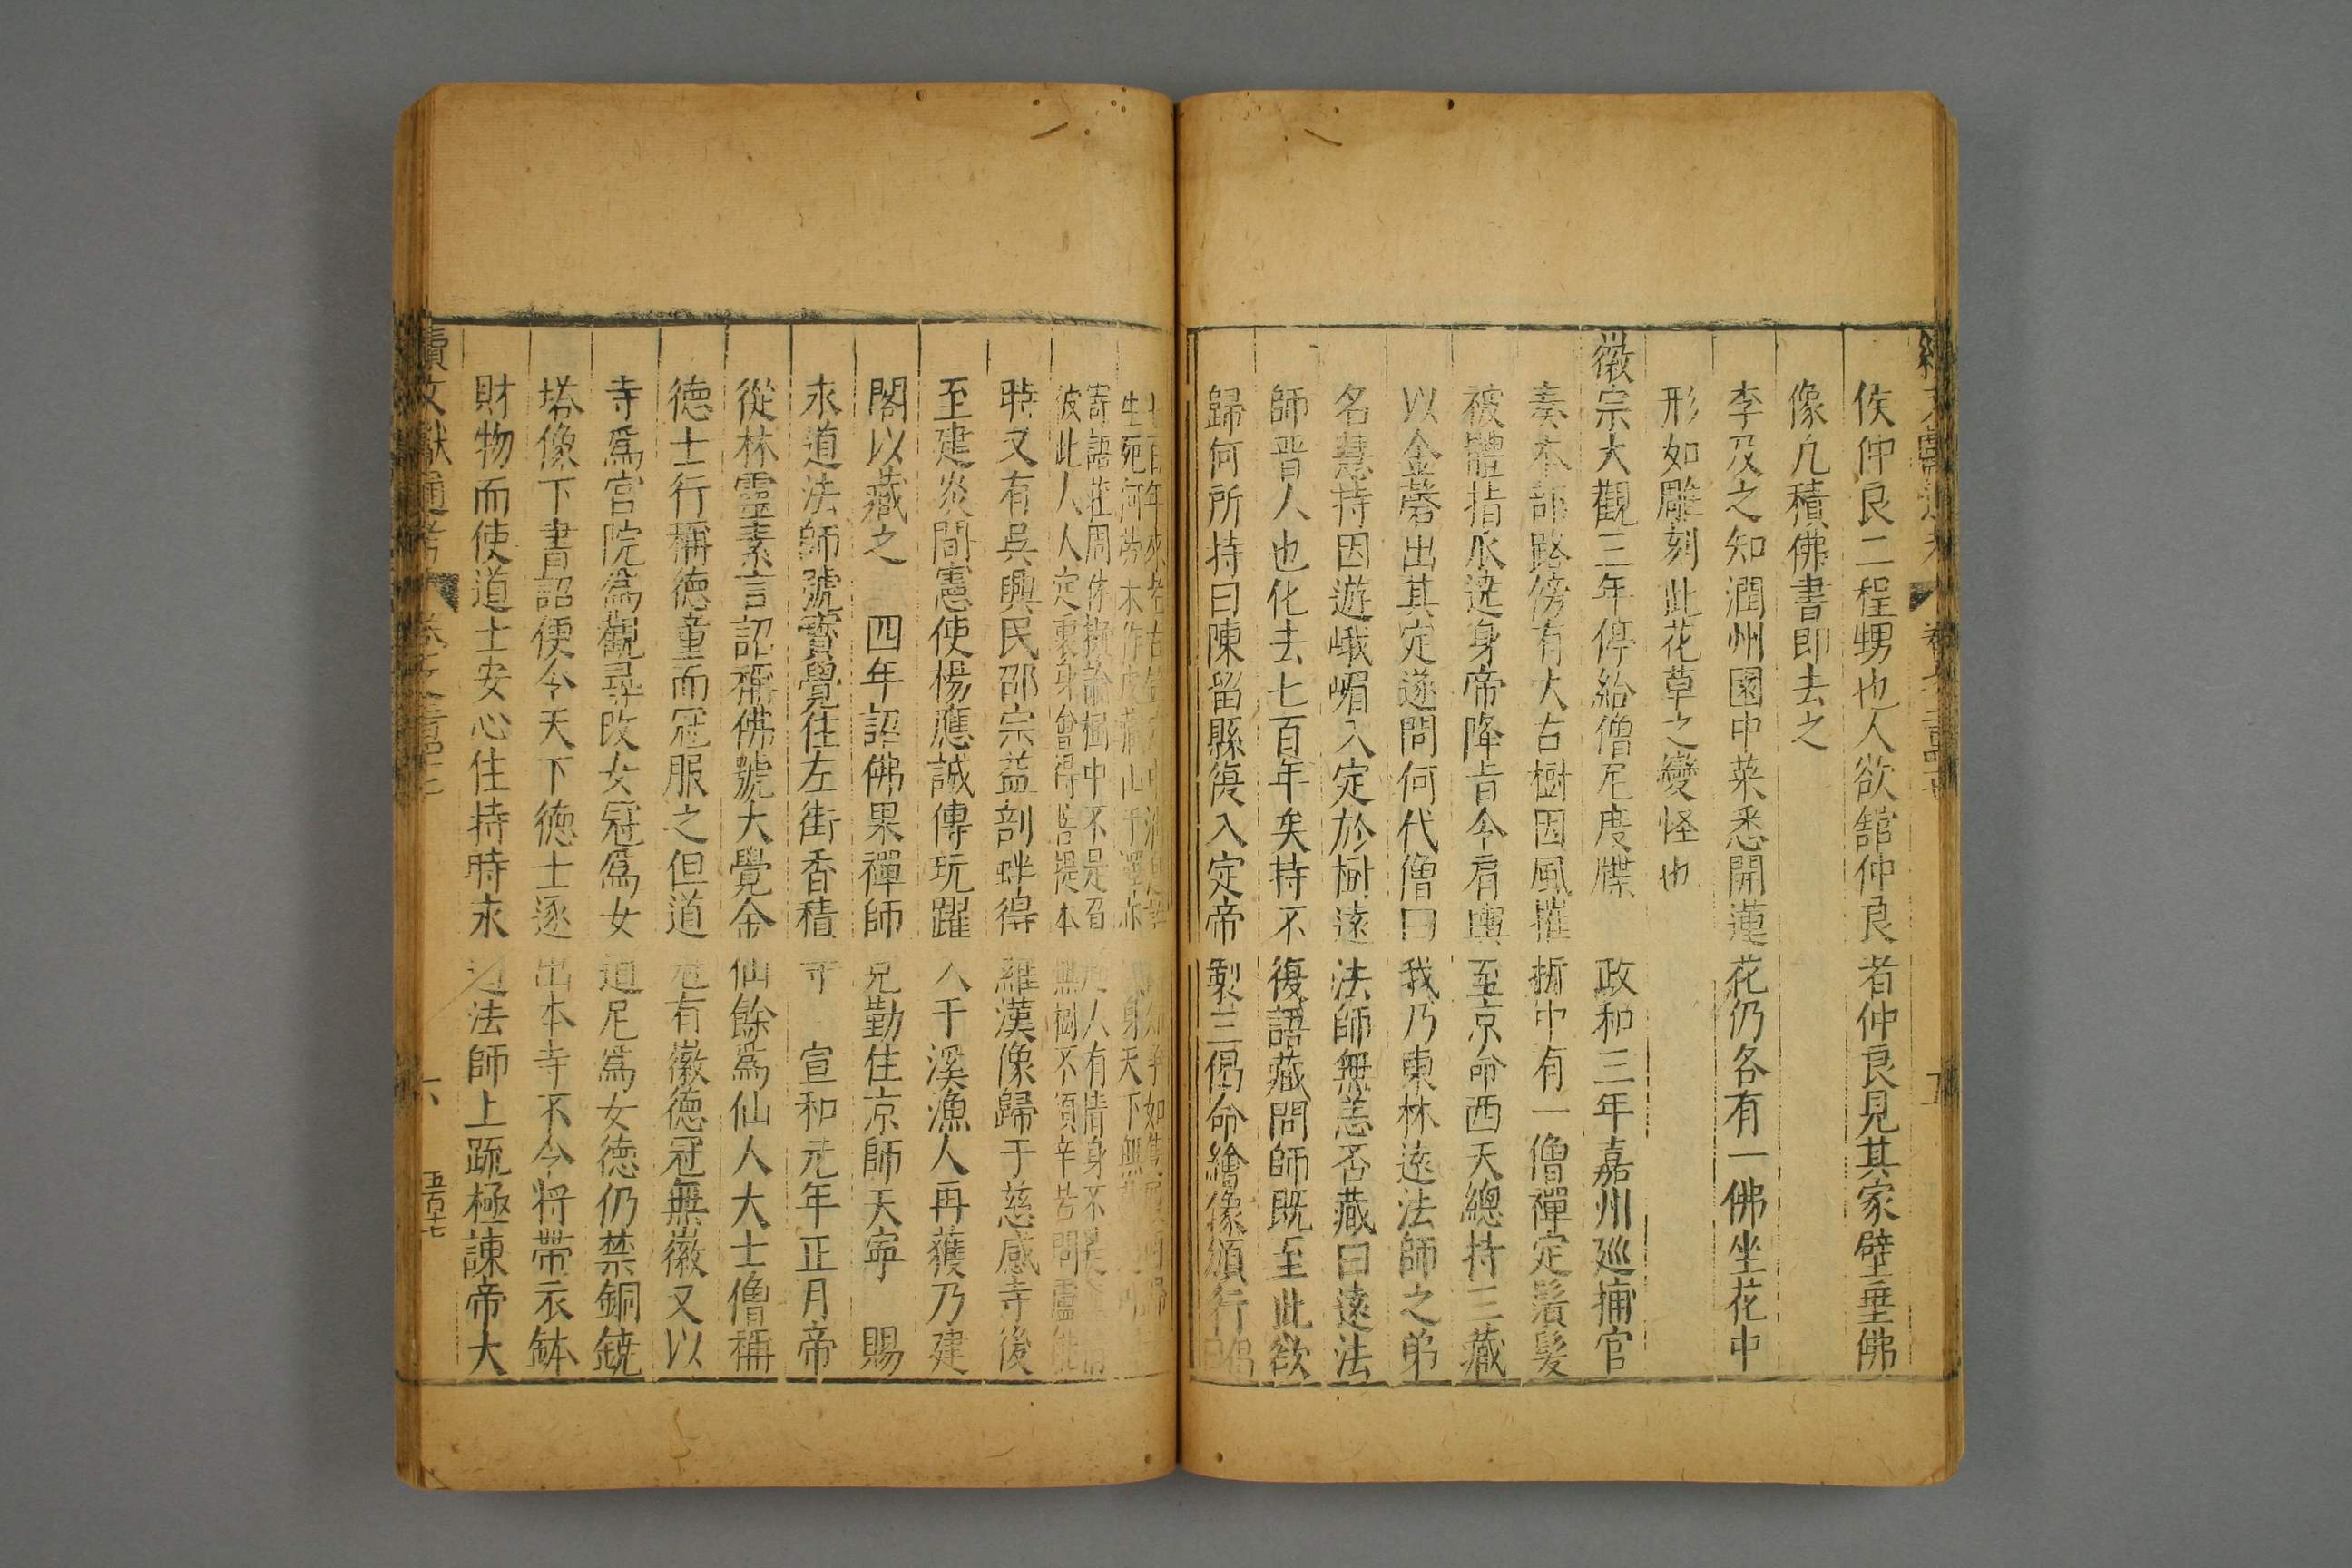 侯仲良二程甥也人欲舘仲良者仲良見其家壁垂佛
像凢積佛書即去之
李及之知潤州園中菜悉開蓮花仍各有一佛坐花中
形如雕刻此花草之變怪也
徽宗大觀三年停給僧尼度牒　政和三年嘉州廵捕官
奏本部路傍有大古樹因風摧折中有一僧禪定鬚髮
被體指爪遶身帝降旨令肩輿至京命西天總持三藏
以金磬出其定遂問何代僧曰我乃東林遠法師之弟
名慧持因遊峨嵋入定於樹遠法師無恙否藏曰遠法
師晋人也化去七百年矣持不復語藏問師既至此欲
歸何所持曰陳留縣復入定帝製三偈命繪像頒行偈曰
七百年來老古錐定中消息
生死何勞木作皮藏山于澤亦身天下無
寄語莊周休擬論樹中不是負人人有情身不是
彼此人人定裏身會得菩提本無樹不須辛苦問盧能
時又有吳興民邵宗益剖蚌得羅漢像歸于慈感寺後
至建炎間憲使楊應誠傳玩躍入于溪漁人再獲乃建
閣以藏之　四年詔佛果禪師克勤住京師天寧　賜
永道法師號寳覺住左街香積寺　宣和元年正月帝
從林靈素言詔稱佛號大覺金仙餘爲仙人大士僧稱
德士行稱德童而冠服之但道冠有徽德冠無徽又以
寺爲宮院爲觀尋改女冠爲女道尼爲女德仍禁銅鐃
塔像下書詔便令天下德士逐出本寺不令將帶衣鉢
財物而使道士安心住持時永道法師上䟽極諫帝大
續文獻通考　卷之二百四十七　六　五百十七